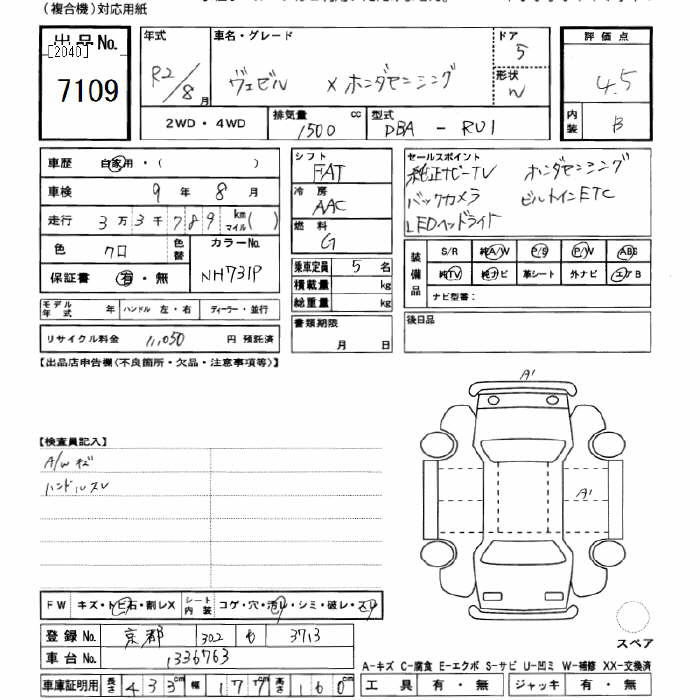 (複合機)対応用紙
出品No.
[2040]
7109
年式
R2/8月
車名・グレード
ヴェゼル X ホンダセンシング
ドア
5
形状
W
評価点
4.5
内装
B
2WD・4WD
排気量
1500 cc
型式
DBA - RU1
車歴 自家用・( )
車検 9年 8月
走行 3万3千789 km マイル( )
色 クロ
色替
カラーNo.
NH731P
保証書 有・無
モデル年式 年 ハンドル 左・右 ディーラー・並行
リサイクル料金 11,050 円 預託済
シフト
FAT
冷房
AAC
燃料
G
乗車定員 5名
積載量 kg
総重量 kg
書類期限
月 日
セールスポイント
純正ナビ-TV ホンダセンシング
バックカメラ ビルトインETC
LEDヘッドライト
装備品
S/R 純A/W P/S P/W ABS
純TV 純ナビ 革シート 外ナビ エアB
ナビ型番:
後日品
【出品店申告欄(不良箇所・欠品・注意事項等)】
【検査員記入】
A/Wキズ
ハンドルスレ
A1
A1
FW キズ・トビ石・割レX
シート内装 コゲ・穴・汚レ・シミ・破レ・スレ
登録No. 京都 302 も 3713
車台No. 1336763
車庫証明用 長さ 433cm 幅 177cm 高さ 160cm
スペア
A-キズ C-腐食 E-エクボ S-サビ U-凹ミ W-補修 XX-交換済
工具 有・無 ジャッキ 有・無